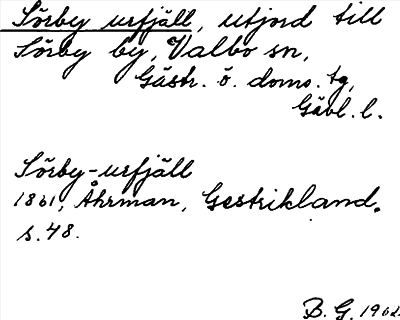 Sörby urfjäll, utjord till
Sörby by, Valbo sn,
Gästr. ö. doms. tg,
Gävl. l.
Sörby-urfjäll
1861, Åhrman, Gestrikland.
s. 48.
B. G. 1962